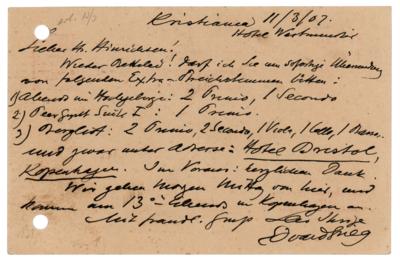 Kristiania 11/3/07.
Hotel Westminster
Lieber Hr. Hinrichsen!
Wieder Bettelei! Darf ich Sie um sofortige Übersendung
von folgenden Extra-Streichstimmen bitten:
1) Abend im Hochgebirge: 2 Primo, 1 Secondo
2) Peer Gynt Suite I: 1 Primo.
3) 2 Primo, 2 Secondo, 1 Viola, 1 Cello, 1 Basso.
und zwar unter Adresse: Hotel Bristol,
Kopenhagen. Im Voraus herzlichen Dank.
Wir gehen Morgen Mittag von hier, und
kommen am 13ten Abends in Kopenhagen an.
Mit freundl. Gruss Ihr
Edvard Grieg